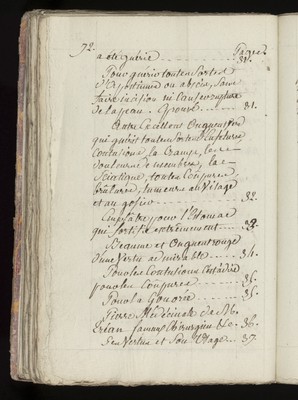 72.
Pages
a été guérie ........ 31.
Pour guérir toutes sortes
d'apostumes ou abscès, sans
faire incision ni
de la peau. Eprouvé ...... 31.
Autre Excellent Onguent
qui guérit toutes sortes
Contusions, la Crampe, les
de membres, la
Sciatique, toutes Coupures,
Brulures, tumeurs au Visage
et au gosier ........ 32.
Emplâtre pour l'Estomac
qui fortifie extrêmement .... 32.
Beaume et Onguent rouge
d'une Vertu admirable ..... 34.
Pour les Contusions c'est à dire
pour les Coupures ...... 35.
Pour la Gonorée ........ 35.
Pierre Médécinale de
fameux Chirurgien &c. 36.
Ses Vertus et Son Usage ... 37.